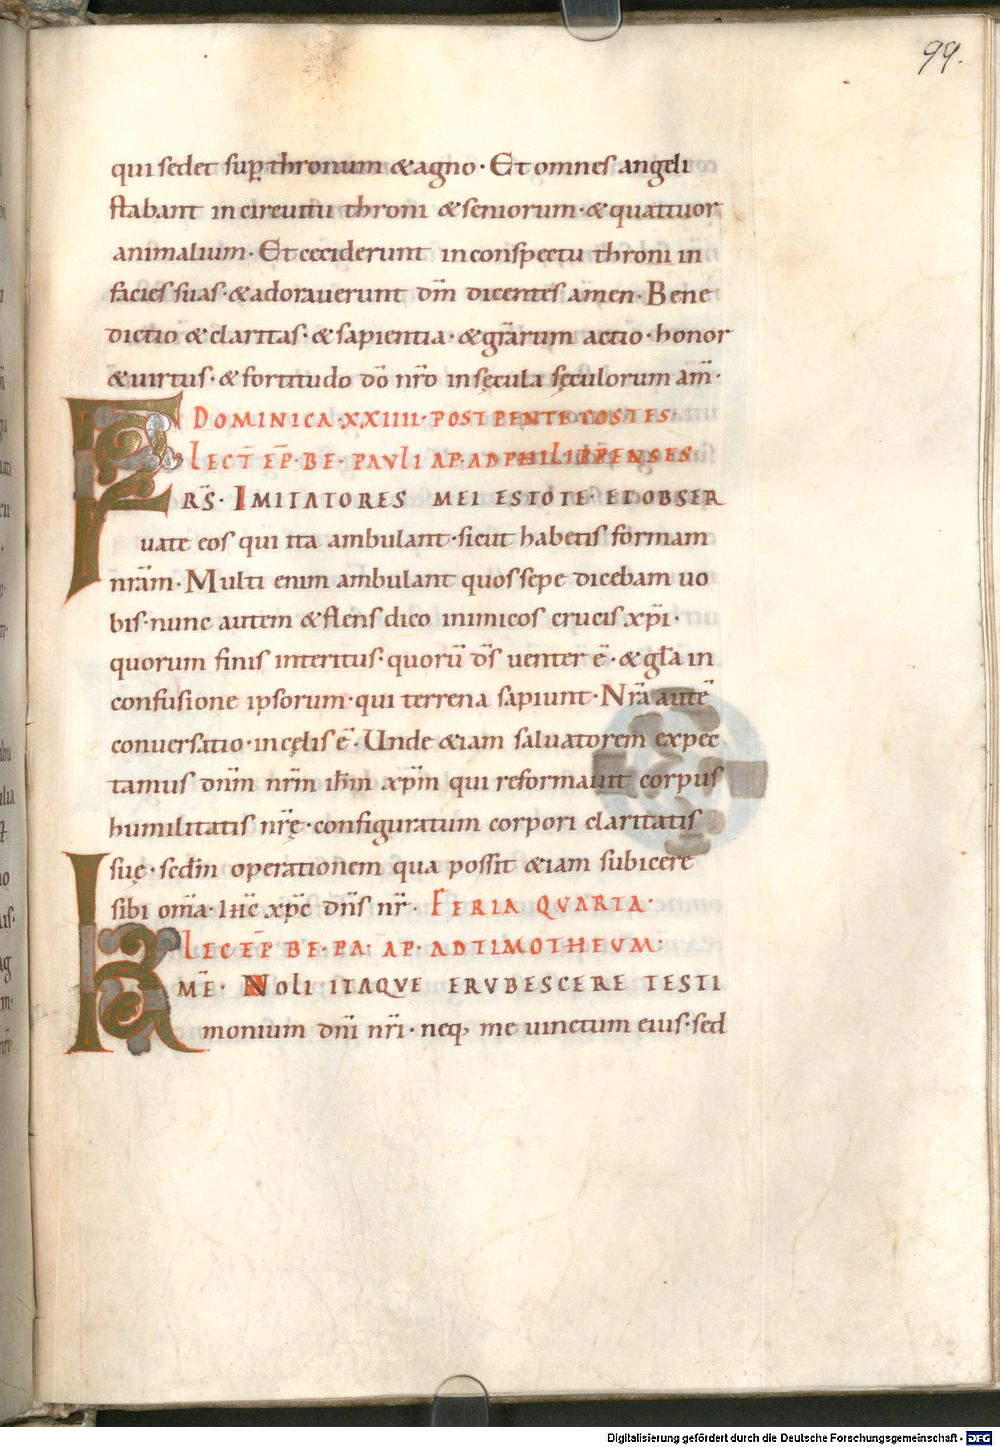 99.
qui sedet sup̲ thronum & agno· Et omnes angeli
stabant in circuitu throni & seniorum· & quattuor
animalium· Et ceciderunt in conspectu throni in
facies suas· & adorauerunt dm̄ dicentes amen· Bene
dictio & claritas· & sapientia· & gr̄arum actio· honor
& uirtus· & fortitudo dō nr̄o in sęcula sęculorum am̄·
DOMINICA·XXIIII·POST PENTECOSTES·
LECT̄ EP̄·BE·PAVLI AP·AD PHILIPPENSES·
FRS̄· IMITATORES MEI ESTOTE· ET OBSER
uate eos qui ita ambulant· sicut habetis formam
nr̄am· Multi enim ambulant quos sepe dicebam uo
bis· nunc autem & flens dico inimicos crucis xp̄i·
quorum finis interitus· quorū ds̄ uenter ē· & gl̄a in
confusione ipsorum· qui terrena sapiunt· Nr̄a autē
conuersatio· in cęlis ē· Unde &iam saluatorem expec
tamus dnm̄ nr̄m ih̄m xp̄m qui reformauit corpus
humilitatis nr̄ę· configuratum corpori claritatis
suę· scdm̄ operationem qua possit &iam subicere
sibi om̄a· ihc̄ xpc̄ dn̄s nr̄· FERIA QVARTA·
LEC EP̄ BE·PA· AP· AD TIMOTHEVM·
KMĒ· NOLI ITAQVE ERVBESCERE TESTI
monium dn̄i nr̄i· neq; me uinctum eius· sed
Digitalisierung gefördert durch die Deutsche Forschungsgemeinschaft - DFG